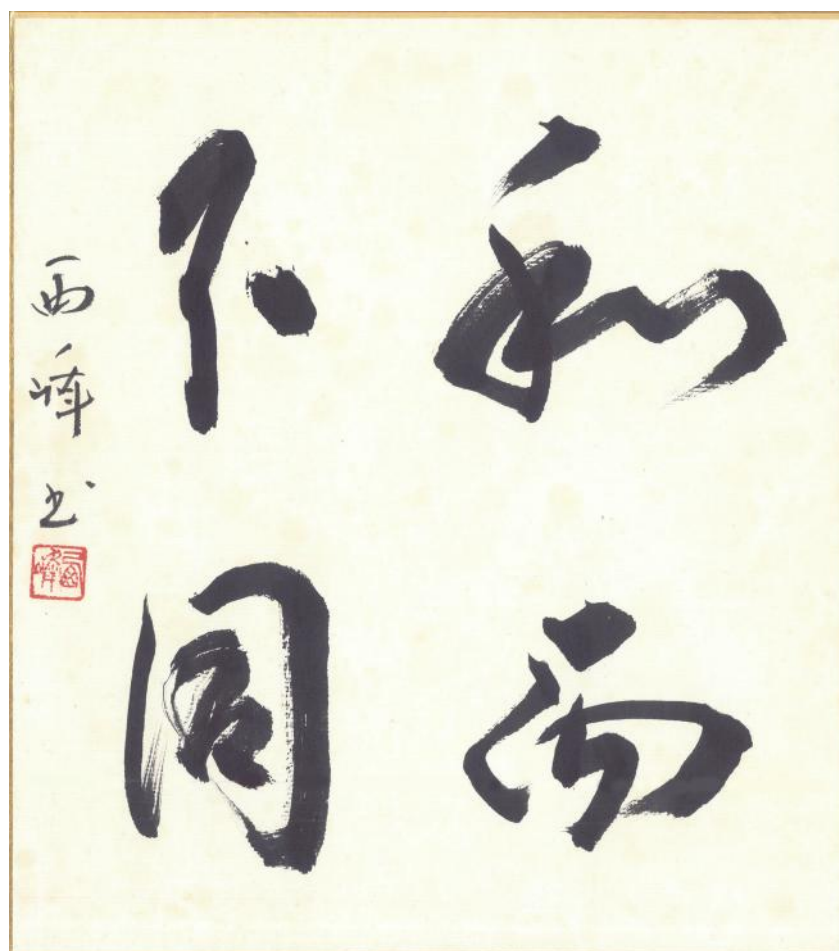 和而
不同
西峰書